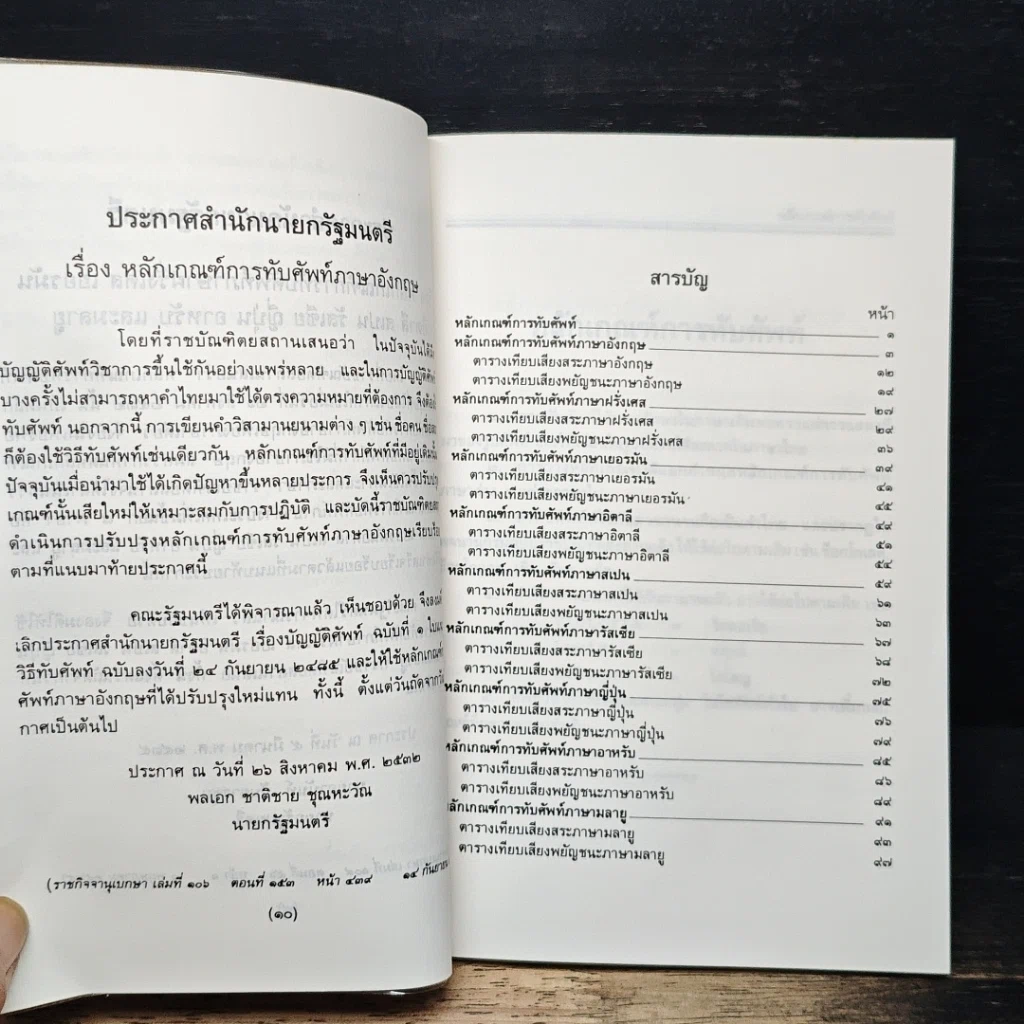 ประกาศสำนักนายกรัฐมนตรี
เรื่อง หลักเกณฑ์การทับศัพท์ภาษาอังกฤษ
โดยที่ราชบัณฑิตยสถานเสนอว่า ในปัจจุบันได้มี
บัญญัติศัพท์วิชาการขึ้นใช้กันอย่างแพร่หลาย และในการบัญญัติศัพท์
บางครั้งไม่สามารถหาคำไทยมาใช้ได้ตรงความหมายที่ต้องการ จึงต้องใช้
ทับศัพท์ นอกจากนี้ การเขียนคำวิสามานยนามต่าง ๆ เช่น ชื่อคน
ก็ต้องใช้วิธีทับศัพท์เช่นเดียวกัน หลักเกณฑ์การทับศัพท์ที่มีอยู่เดิมนั้น
ปัจจุบันเมื่อนำมาใช้ได้เกิดปัญหาขึ้นหลายประการ จึงเห็นควรปรับปรุง
เกณฑ์นั้นเสียใหม่ให้เหมาะสมกับการปฏิบัติ และบัดนี้ราชบัณฑิตยส
ดำเนินการปรับปรุงหลักเกณฑ์การทับศัพท์ภาษาอังกฤษเรียบร้
ตามที่แนบมาท้ายประกาศนี้
คณะรัฐมนตรีได้พิจารณาแล้ว เห็นชอบด้วย จึงลงมติ
เลิกประกาศสำนักนายกรัฐมนตรี เรื่องบัญญัติศัพท์ ฉบับที่ ๑
วิธีทับศัพท์ ฉบับลงวันที่ ๒๔ กันยายน ๒๔๘๕ และให้ใช้หลักเกณฑ์
ศัพท์ภาษาอังกฤษที่ได้ปรับปรุงใหม่แทน ทั้งนี้ ตั้งแต่วันถัดจากวัน
กาศเป็นต้นไป
ประกาศ ณ วันที่ ๒๖ สิงหาคม พ.ศ. ๒๕๓๒
พลเอก ชาติชาย ชุณหะวัณ
นายกรัฐมนตรี
(ราชกิจจานุเบกษา เล่มที่ ๑๐๖ ตอนที่ ๑๕๓ หน้า ๔๓๙ ๑๔ กันยายน
(๑๐)
สารบัญ
หน้า
หลักเกณฑ์การทับศัพท์ ๑
หลักเกณฑ์การทับศัพท์ภาษาอังกฤษ ๓
ตารางเทียบเสียงสระภาษาอังกฤษ ๑๒
ตารางเทียบเสียงพยัญชนะภาษาอังกฤษ ๑๙
หลักเกณฑ์การทับศัพท์ภาษาฝรั่งเศส ๒๗
ตารางเทียบเสียงสระภาษาฝรั่งเศส ๒๙
ตารางเทียบเสียงพยัญชนะภาษาฝรั่งเศส ๓๖
หลักเกณฑ์การทับศัพท์ภาษาเยอรมัน ๓๙
ตารางเทียบเสียงสระภาษาเยอรมัน ๔๑
ตารางเทียบเสียงพยัญชนะภาษาเยอรมัน ๔๕
หลักเกณฑ์การทับศัพท์ภาษาอิตาลี ๔๙
ตารางเทียบเสียงสระภาษาอิตาลี ๕๑
ตารางเทียบเสียงพยัญชนะภาษาอิตาลี ๕๔
หลักเกณฑ์การทับศัพท์ภาษาสเปน ๕๙
ตารางเทียบเสียงสระภาษาสเปน ๖๑
ตารางเทียบเสียงพยัญชนะภาษาสเปน ๖๓
หลักเกณฑ์การทับศัพท์ภาษารัสเซีย ๖๗
ตารางเทียบเสียงสระภาษารัสเซีย ๖๘
ตารางเทียบเสียงพยัญชนะภาษารัสเซีย ๗๒
หลักเกณฑ์การทับศัพท์ภาษาญี่ปุ่น ๗๕
ตารางเทียบเสียงสระภาษาญี่ปุ่น ๗๖
ตารางเทียบเสียงพยัญชนะภาษาญี่ปุ่น ๗๙
หลักเกณฑ์การทับศัพท์ภาษาอาหรับ ๘๕
ตารางเทียบเสียงสระภาษาอาหรับ ๘๖
ตารางเทียบเสียงพยัญชนะภาษาอาหรับ ๘๙
หลักเกณฑ์การทับศัพท์ภาษามลายู ๙๑
ตารางเทียบเสียงสระภาษามลายู ๙๓
ตารางเทียบเสียงพยัญชนะภาษามลายู ๙๗